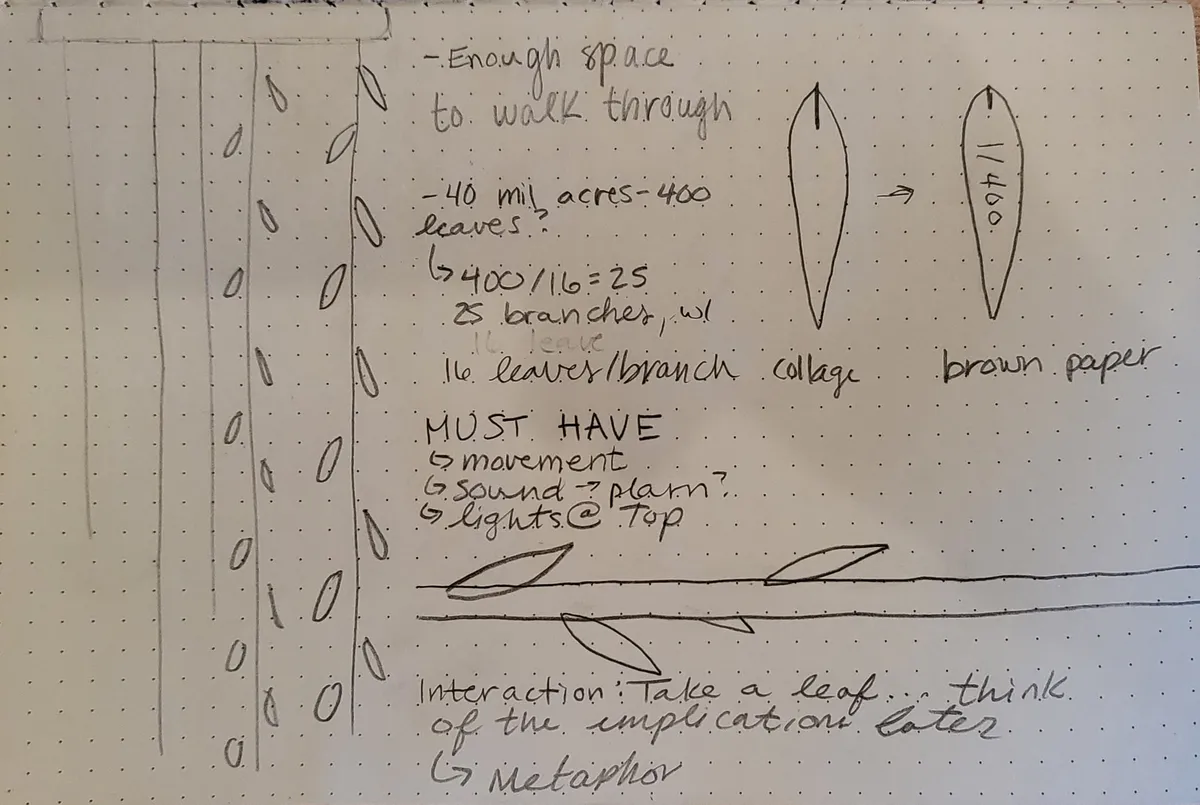 - Enough space
to walk through
- 40 mil acres - 400
leaves?
↳ 400/16 = 25
25 branches, w/
16 leave
16 leaves/branch
collage
→
1/400
brown paper
MUST HAVE
↳ movement
↳ sound → plarn?
↳ lights @ Top
Interaction: Take a leaf... think
of the implications later
↳ Metaphor